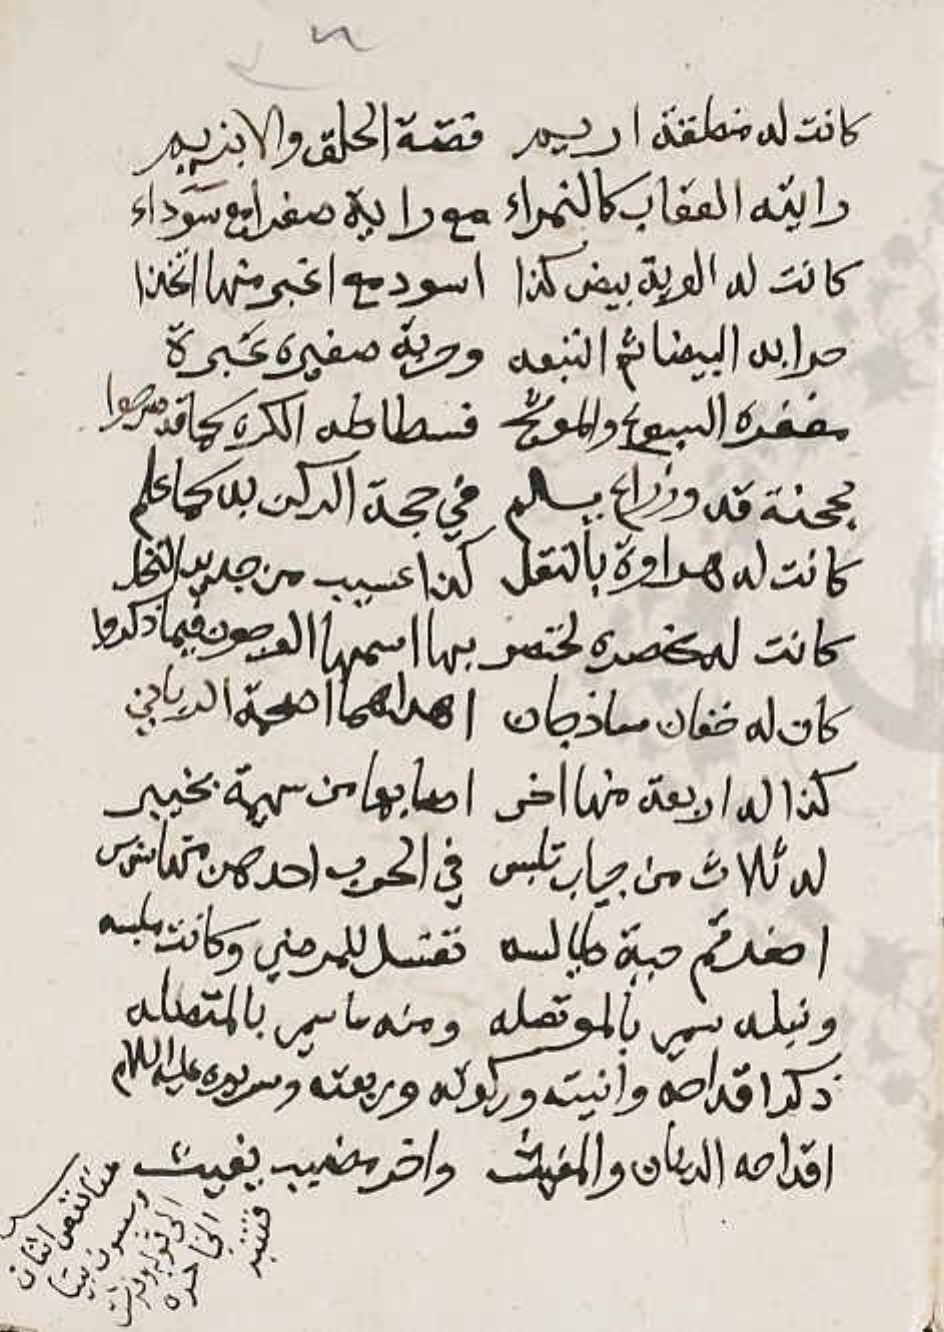 كانت له منطقة اديم فضة الحلق والابزيم
رايته العقاب كالنمراء مع راية صفرا مع سوداء
كانت له الوية بيض كذا اسود مع اغبر منها اتخذا
حرابه البيضا ثم النبعه وحربة صغيرة عنزة
مغفره السبوغ والموشح فسطاطه الكن كما قد صرحوا
محجنة قد وذراع يستلم في حجة الركن به كما علم
كانت له هراوة بالنقل كذا عسيب من جريد النخل
كانت له مخصرة يختصر بها اسمها العرجون فيما ذكروا
كان له خفان ساذجان اهداهما اصحمة الرباني
كذا له اربعة منها اخر اصابها من سهمه بخيبر
له ثلاث من جباب تلبس في الحرب احدهن منها سندس
اخضر ثم جبة طيالسه تغسل للمرضى وكانت ملبسه
ونبله سمي بالموتصله ومنه ما سمي بالمتصله
ذكر اقداحه وآنيته وركوته وربعته وسريره عليه السلام
اقداحه الريان والمغيث واخر مضبب يغيث
هنا نقص اثنان
وستون بيتا
الى قوله وفرقت
الى اخره
فتنبه